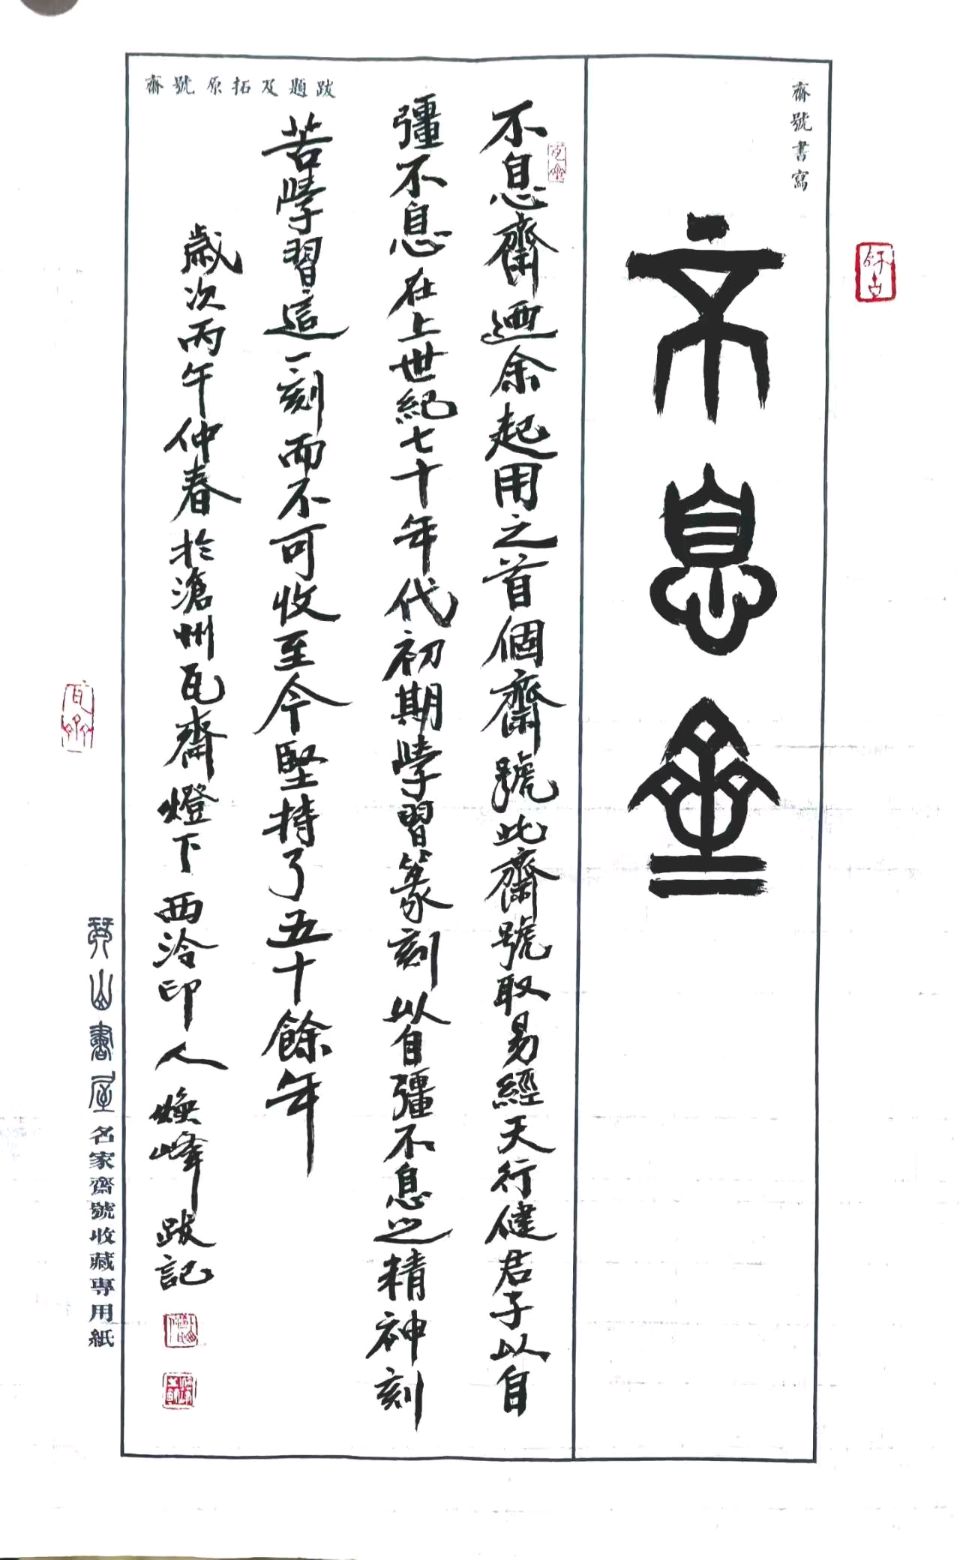 齋號書寫
不息齋
齋號原拓及題跋
不息齋迺余起用之首個齋號此齋號取易經天行健君子以自
彊不息在上世紀七十年代初期學習篆刻以自彊不息之精神刻
苦學習這一刻而不可收至今堅持了五十餘年
歲次丙午仲春於滄州瓦齋燈下西泠印人煥峰跋記
山書屋名家齋號收藏專用紙